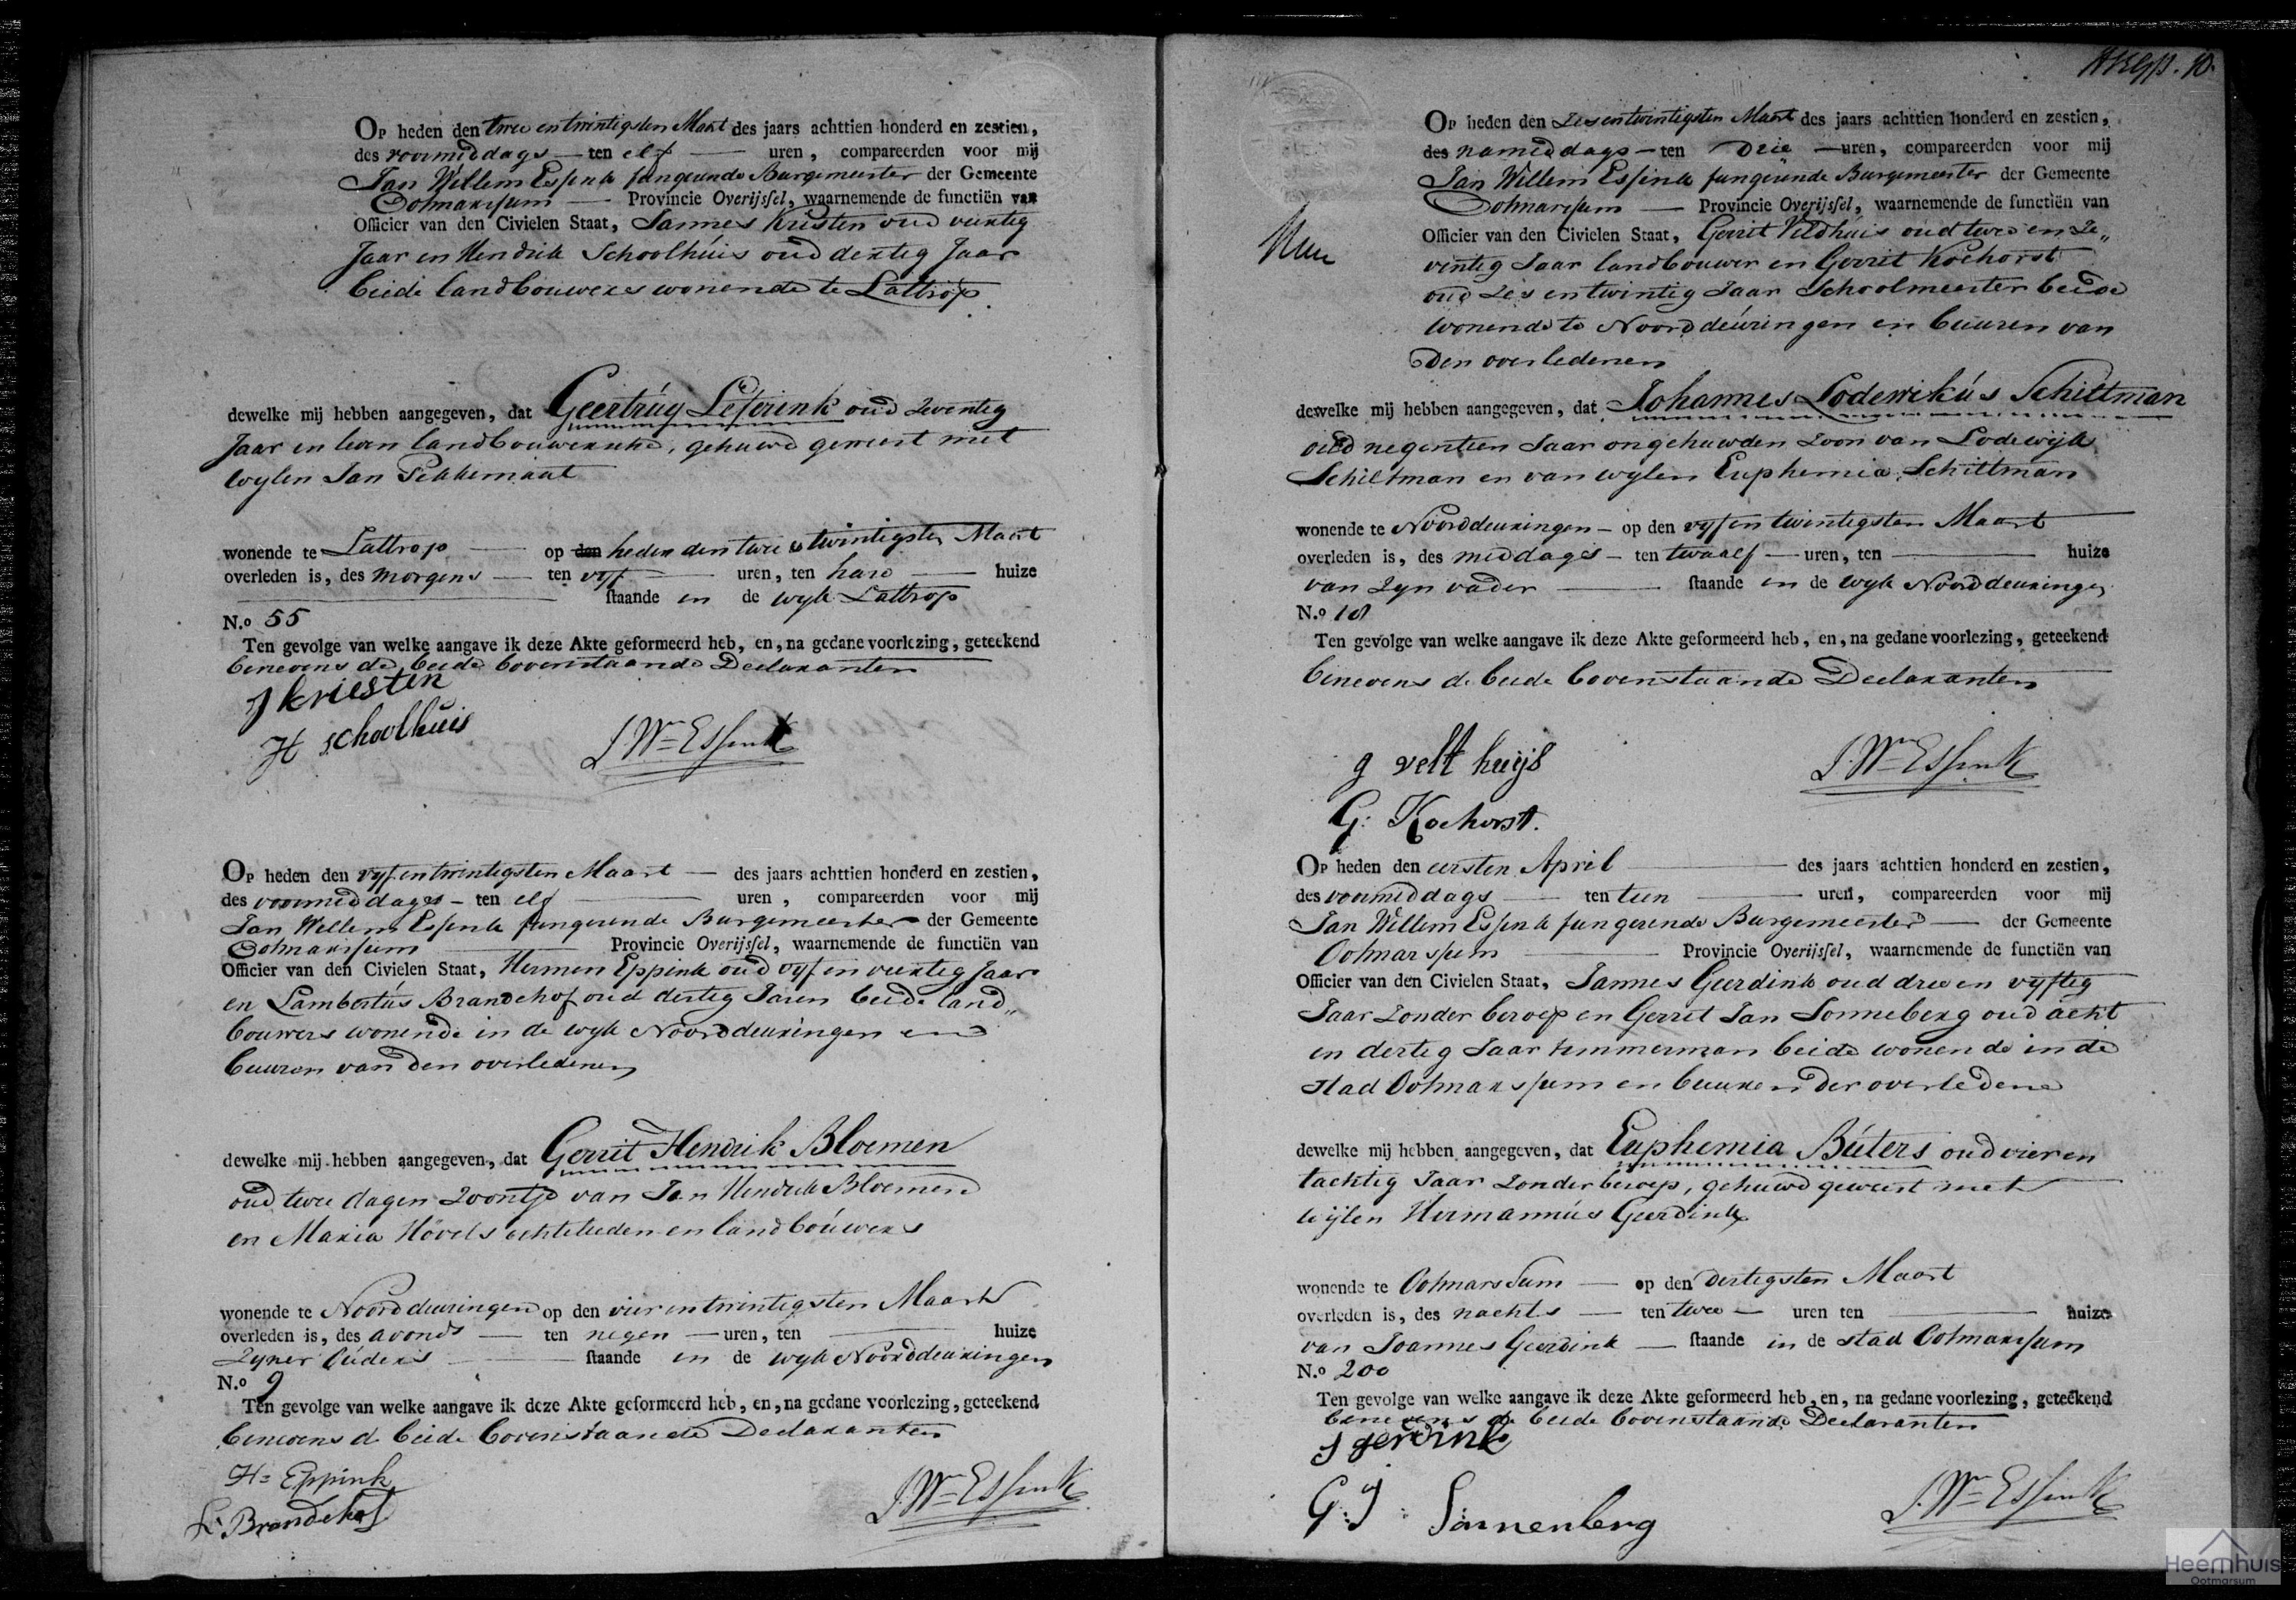 Op heden den twee en twintigsten Maart des jaars achttien honderd en zestien,
des voormiddags — ten elf — uren, compareerden voor mij
Jan Willem Essink fungerende Burgemeester der Gemeente
Ootmarssum — Provincie Overijssel, waarnemende de functiën van
Officier van den Civielen Staat, Jannes Kristen oud veertig
Jaar en Hendrik Schoolhúis oud dertig Jaar
beide landbouwers wonende te Lattrop
dewelke mij hebben aangegeven, dat Geertrúy Leferink oud zeventig
Jaar en leven landbouwersche, gehuwd geweest met
wylen Jan Pekkemaat
wonende te Lattrop — op den heden den twee en twintigsten Maart
overleden is, des morgens — ten vyf — uren, ten hare — huize
staande in de wyk Lattrop
N.o 55
Ten gevolge van welke aangave ik deze Akte geformeerd heb, en, na gedane voorlezing, geteekend
benevens de beide bovenstaande Declaranten
J kriesten
H schoolhuis
J. Wm Essink
Op heden den vyf en twintigsten Maart — des jaars achttien honderd en zestien,
des voormiddags — ten elf — uren, compareerden voor mij
Jan Willem Essink fungerende Burgemeester der Gemeente
Ootmarssum — Provincie Overijssel, waarnemende de functiën van
Officier van den Civielen Staat, Hermen Eppink oud vyf en veertig Jaar
en Lambertús Brandehof oud dertig Jaren beide land„
bouwers wonende in de wyk Noorddeuringen en
buuren van den overledenen
dewelke mij hebben aangegeven, dat Gerrit Hendrik Bloemen
oud twee dagen zoontje van Jan Hendrik Bloemen
en Maria Hövels echtelieden en landboúwers
wonende te Noorddeuringen op den vier en twintigsten Maart
overleden is, des avonds — ten negen — uren, ten — huize
zyner oúders — staande in de wyk Noorddeuringen
N.o 9
Ten gevolge van welke aangave ik deze Akte geformeerd heb, en, na gedane voorlezing, geteekend
benevens de beide bovenstaande Declaranten
H= Eppink
L: Brandehof
J. Wm Essink
10.
Op heden den zes en twintigsten Maart des jaars achttien honderd en zestien,
des namiddags — ten Drie — uren, compareerden voor mij
Jan Willem Essink fungerende Burgemeester der Gemeente
Ootmarssum — Provincie Overijssel, waarnemende de functiën van
Officier van den Civielen Staat, Gerrit Veldhúis oud twee en ze„
ventig Jaar landbouwer en Gerrit Koehorst
oud zes en twintig Jaar Schoolmeester beide
wonende te Noorddeúringen en buuren van
den overledenen
dewelke mij hebben aangegeven, dat Johannes Lodewikús Schiltman
oud negentien Jaar ongehuwden zoon van Lodewijk
Schiltman en van wylen Euphemia Schiltman
wonende te Noorddeuringen — op den vyf en twintigsten Maart
overleden is, des middags — ten twaalf — uren, ten — huize
van zyn vader — staande in de wyk Noorddeuringen
N.o 18
Ten gevolge van welke aangave ik deze Akte geformeerd heb, en, na gedane voorlezing, geteekend
benevens de beide bovenstaande Declaranten
g velt huijs
G: Koehorst.
J. Wm Essink
Op heden den eersten April — des jaars achttien honderd en zestien,
des voormiddags — ten tien — uren, compareerden voor mij
Jan Willem Essink fungerende Burgemeester — der Gemeente
Ootmarssum — Provincie Overijssel, waarnemende de functiën van
Officier van den Civielen Staat, Jannes Geerdink oud drie en vyftig
Jaar zonder beroep en Gerrit Jan Sonneberg oud acht
en dertig Jaar timmerman beide wonende in de
stad Ootmarssum en buuren der overledene
dewelke mij hebben aangegeven, dat Euphemia Búters oud vier en
tachtig Jaar zonder beroep, gehuwd geweest met
wijlen Hermannús Geerdink
wonende te Ootmarssum — op den dertigsten Maart
overleden is, des nachts — ten twee — uren ten — huize
van Joannes Geerdink — staande in de stad Ootmarssum
N.o 200
Ten gevolge van welke aangave ik deze Akte geformeerd heb, en, na gedane voorlezing, geteekend
benevens de beide bovenstaande Declaranten
J gerdink
G: J: Sonnenberg
J. Wm Essink
Heemhuis
Ootmarsum